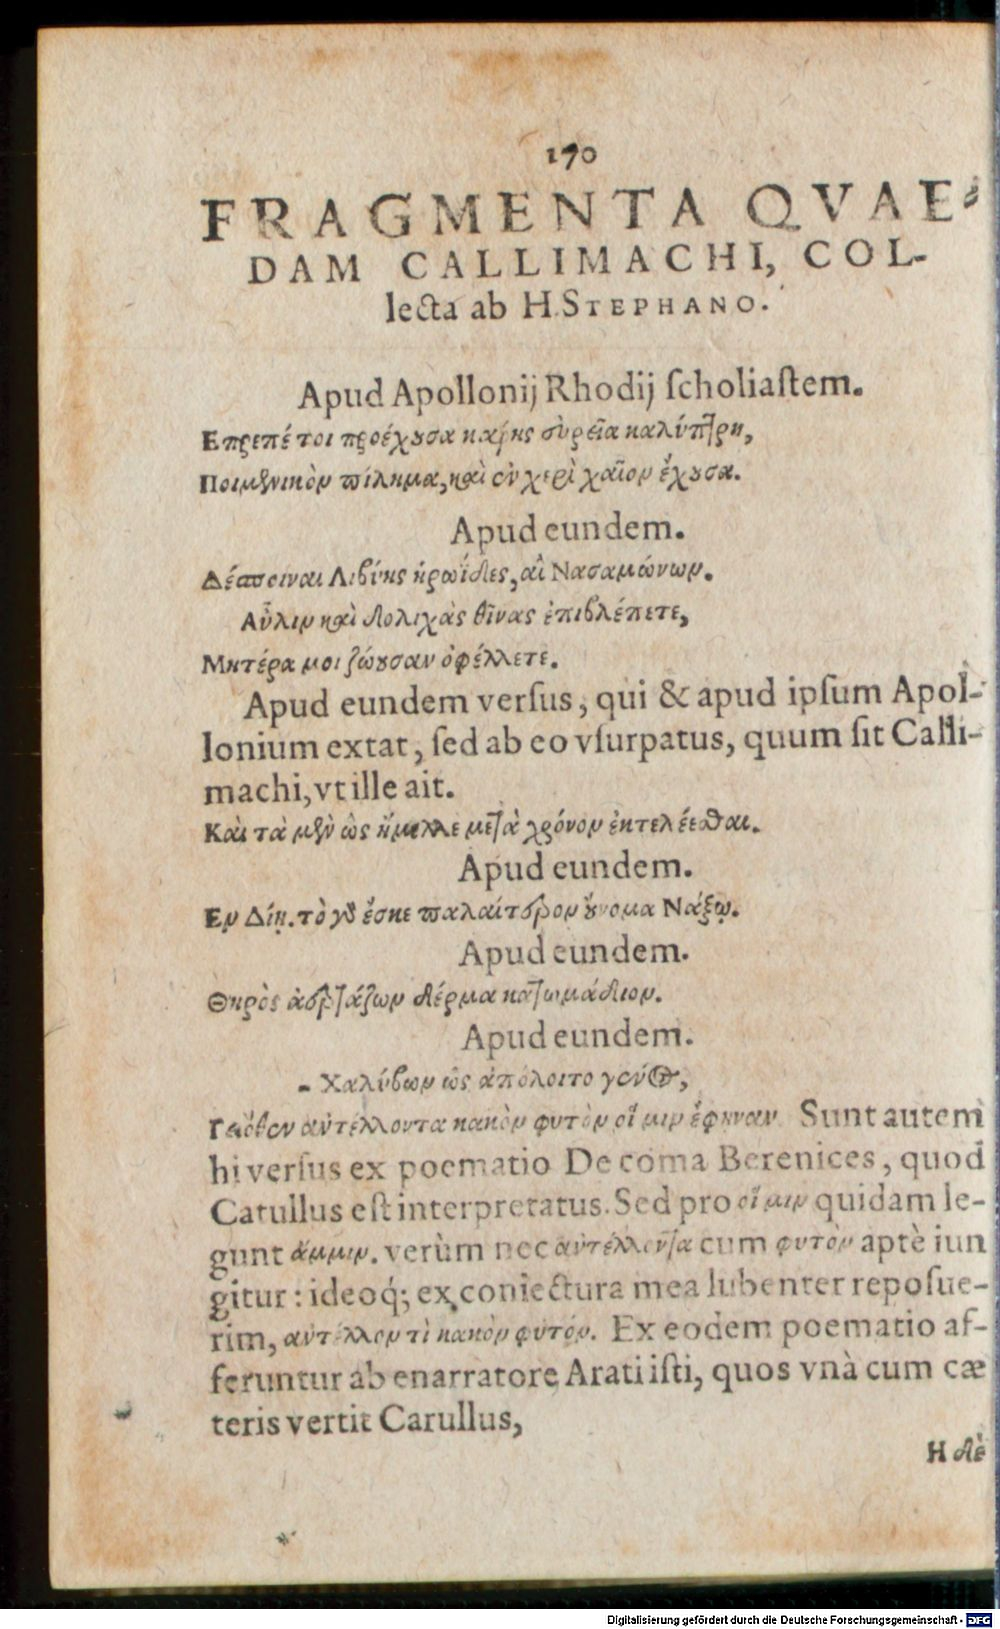 170
FRAGMENTA QVAE-
DAM CALLIMACHI, COL-
lecta ab H. STEPHANO.
Apud Apollonij Rhodij scholiastem.
Επρεπέ τοι προέχουσα κάρης εὐρεῖα καλύπτρη,
Ποιμενικὸν πίλημα, καὶ ἐν χερὶ χαῖον ἔχουσα.
Apud eundem.
Δέσποιναι Λιβύης ἡρωΐδες, αἳ Νασαμώνων.
Αὖλιν καὶ δολιχὰς θῖνας ἐπιβλέπετε,
Μητέρα μοι ζώουσαν ὀφέλλετε.
Apud eundem versus, qui & apud ipsum Apol-
lonium extat, sed ab eo vsurpatus, quum sit Calli-
machi, vt ille ait.
Καὶ τὰ μὲν ὣς ἤμελλε μετὰ χρόνον ἐκτελέεσθαι.
Apud eundem.
Εν Δίῃ. τὸ γὰρ ἔσκε παλαίτερον οὔνομα Νάξῳ.
Apud eundem.
Θηρὸς ἀερτάζων δέρμα κατωμάδιον.
Apud eundem.
- Χαλύβων ὡς ἀπόλοιτο γένος,
Γειόθεν ἀντέλλοντα κακὸν φυτὸν οἵ μιν ἔφηναν Sunt autem
hi versus ex poematio De coma Berenices, quod
Catullus est interpretatus. Sed pro οἵ μιν quidam le-
gunt ἄμμιν. verùm nec ἀντέλλοντα cum φυτὸν aptè iun
gitur: ideoq́; ex coniectura mea lubenter reposue-
rim, ἀντέλλον τὶ κακὸν φυτόν. Ex eodem poematio af-
feruntur ab enarratore Arati isti, quos vnà cum cæ
teris vertit Carullus,
Η δὲ
Digitalisierung gefördert durch die Deutsche Forschungsgemeinschaft - DFG